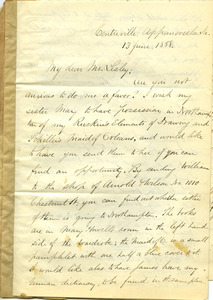 13 June, 1858.
My dear Mr. Lesley:
Are you not
anxious to do me a favor? I wish my
sister Mary to have possession in Northamp
ton of my Ruskin's Elements of Drawing and
Schiller's Maid of Orleans, and would like
to have you send them to her if you can
find an opportunity. By sending William
to the shop of Arnold & Wilson No. 1010
Chestnut St. you can find out whether either
of them is going to Northampton. The books
are in Mary's room on the left hand
side of the wardrobe; the Maid of O. in a small
pamphlet with one half a blue cover on it.
I would like also to have James have my
German dictionary, to be found in the same place